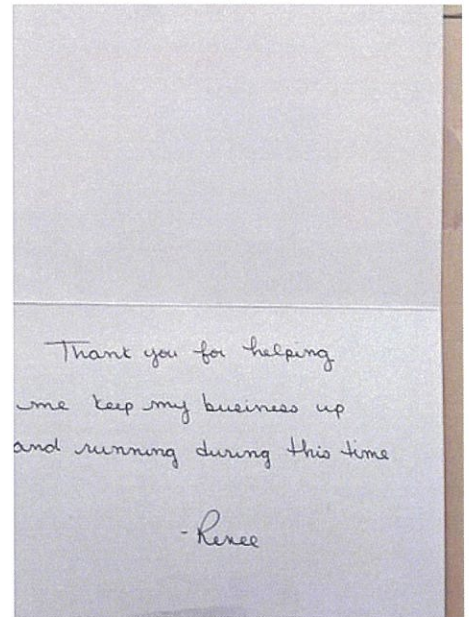 Thank you for helping
me keep my business up
and running during this time
-Renee